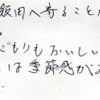 飯田へ寄ることが
どもりもおいしい
は季節感が